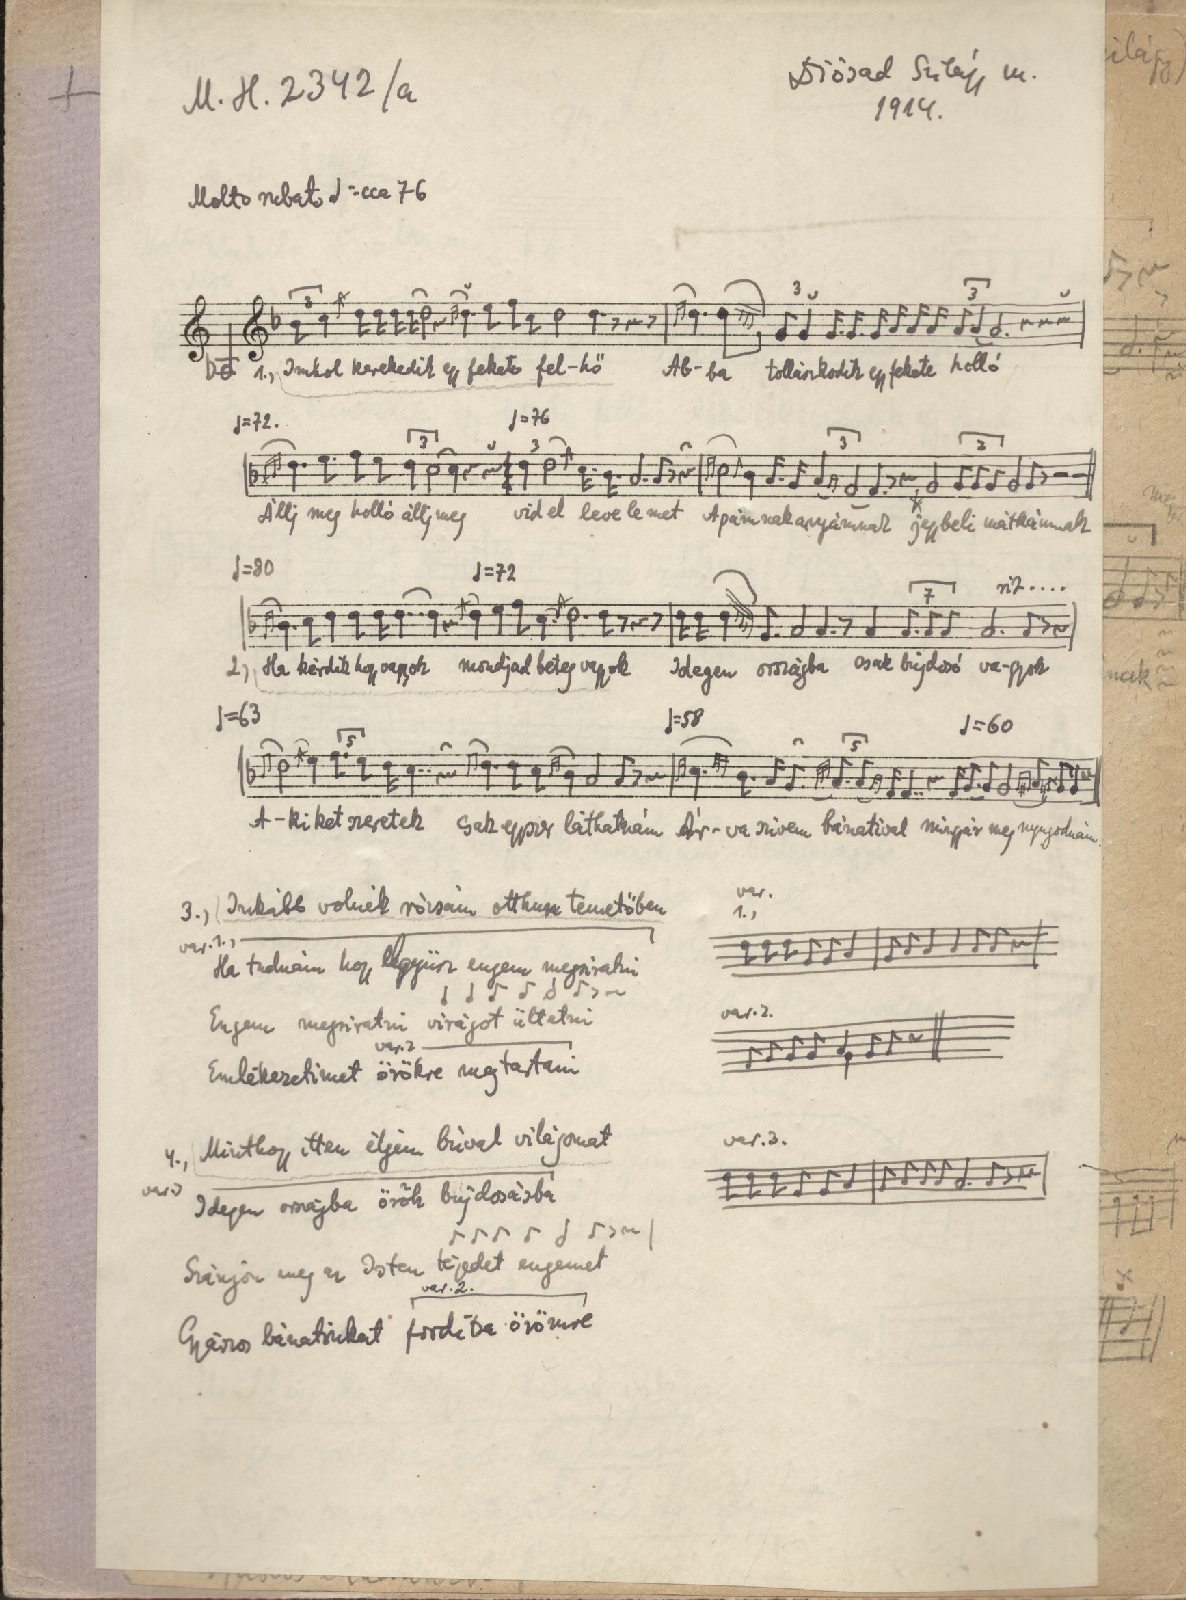 M. H. 2342/a
Diósad Szilágy m.
1914.
Molto rubato ♩=cca 76
3 3 3
1., Imhol kerekedik egy fekete fel-hő Ab-ba tollászkodik egy fekete holló
♩=72. ♩=76
3 3 3 2
Állj meg holló állj meg vid el levelemet Apámnak anyámnak jegybeli mátkámnak
♩=80 ♩=72 rit....
7
2., Ha kérdik hogy vagyok mondjad beteg vagyok Idegen országba csak bujdosó va-gyok
♩=63 ♩=58 ♩=60
5 5
A-kiket szeretek csak egyszer láthatnám Ár-va szivem bánatival mingyár meg nyugodnám.
3., Inkább volnék rózsám otthun temetőben
var. 1.,
Ha tudnám hogy legyüsz engem megsiratni
Engem megsiratni virágot ültetni
var. 2
Emlékezetimet örökre megtartani
var.
1.,
var. 2.
4., Minthogy itten éljem búval világomat
var. 3
Idegen országba örök bujdosásba
Szánjon meg az Isten téjedet engemet
var. 2.
Gyászos bánatinkat fordítsa örömre
var. 3.